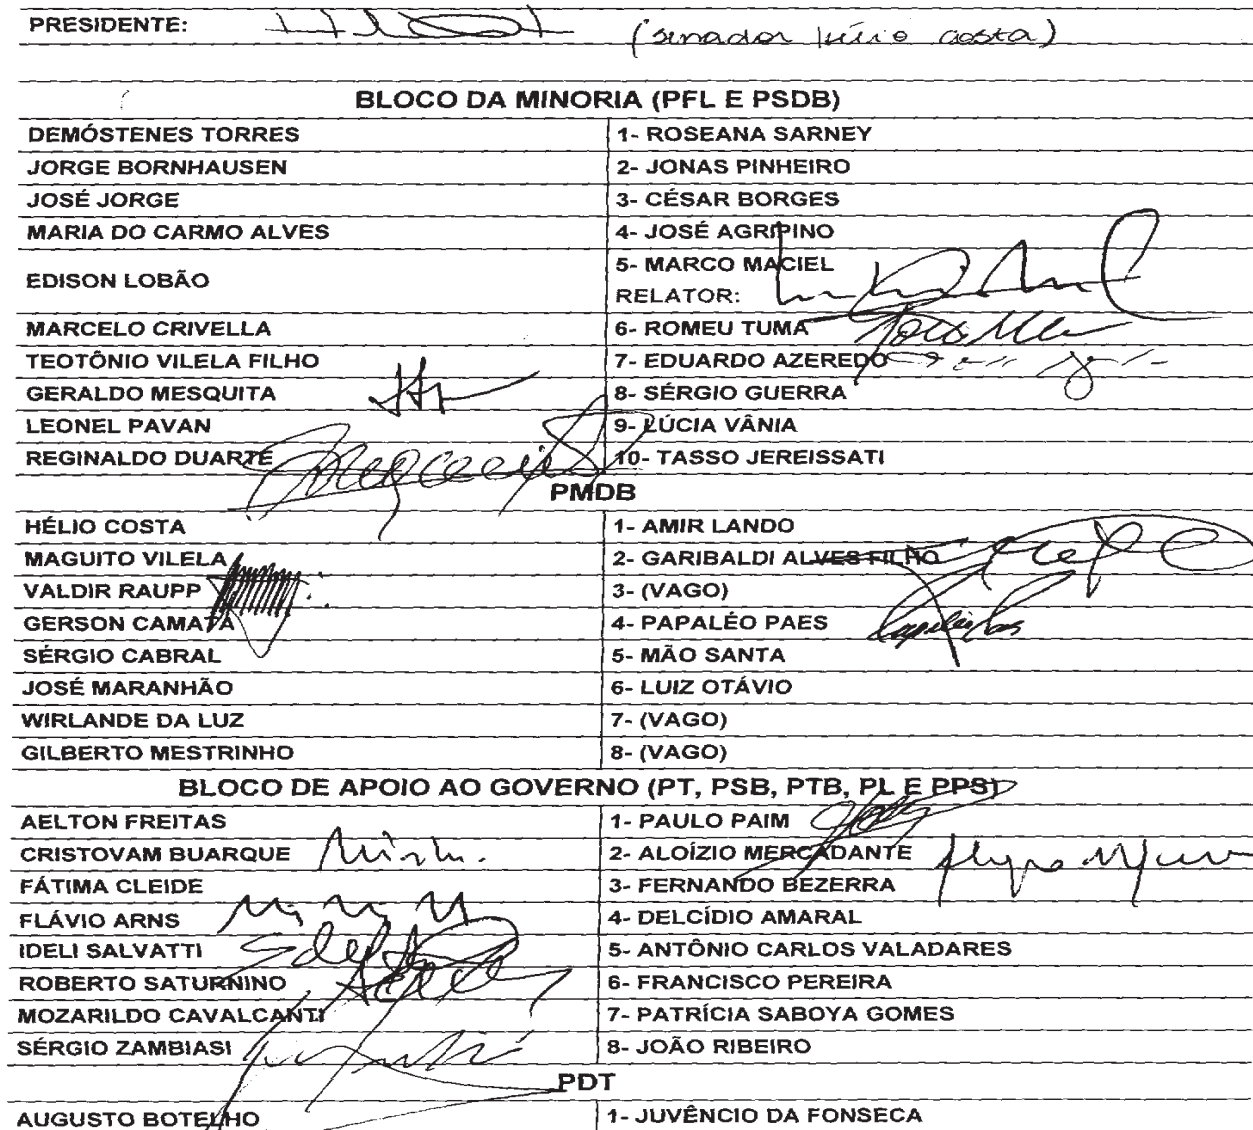 PRESIDENTE: (senador Hélio Costa)
BLOCO DA MINORIA (PFL E PSDB)
DEMÓSTENES TORRES 1- ROSEANA SARNEY
JORGE BORNHAUSEN 2- JONAS PINHEIRO
JOSÉ JORGE 3- CÉSAR BORGES
MARIA DO CARMO ALVES 4- JOSÉ AGRIPINO
EDISON LOBÃO 5- MARCO MACIEL
RELATOR:
MARCELO CRIVELLA 6- ROMEU TUMA
TEOTÔNIO VILELA FILHO 7- EDUARDO AZEREDO
GERALDO MESQUITA 8- SÉRGIO GUERRA
LEONEL PAVAN 9- LÚCIA VÂNIA
REGINALDO DUARTE 10- TASSO JEREISSATI
PMDB
HÉLIO COSTA 1- AMIR LANDO
MAGUITO VILELA 2- GARIBALDI ALVES FILHO
VALDIR RAUPP 3- (VAGO)
GERSON CAMATA 4- PAPALÉO PAES
SÉRGIO CABRAL 5- MÃO SANTA
JOSÉ MARANHÃO 6- LUIZ OTÁVIO
WIRLANDE DA LUZ 7- (VAGO)
GILBERTO MESTRINHO 8- (VAGO)
BLOCO DE APOIO AO GOVERNO (PT, PSB, PTB, PL E PPS)
AELTON FREITAS 1- PAULO PAIM
CRISTOVAM BUARQUE 2- ALOÍZIO MERCADANTE
FÁTIMA CLEIDE 3- FERNANDO BEZERRA
FLÁVIO ARNS 4- DELCÍDIO AMARAL
IDELI SALVATTI 5- ANTÔNIO CARLOS VALADARES
ROBERTO SATURNINO 6- FRANCISCO PEREIRA
MOZARILDO CAVALCANTI 7- PATRÍCIA SABOYA GOMES
SÉRGIO ZAMBIASI 8- JOÃO RIBEIRO
PDT
AUGUSTO BOTELHO 1- JUVÊNCIO DA FONSECA